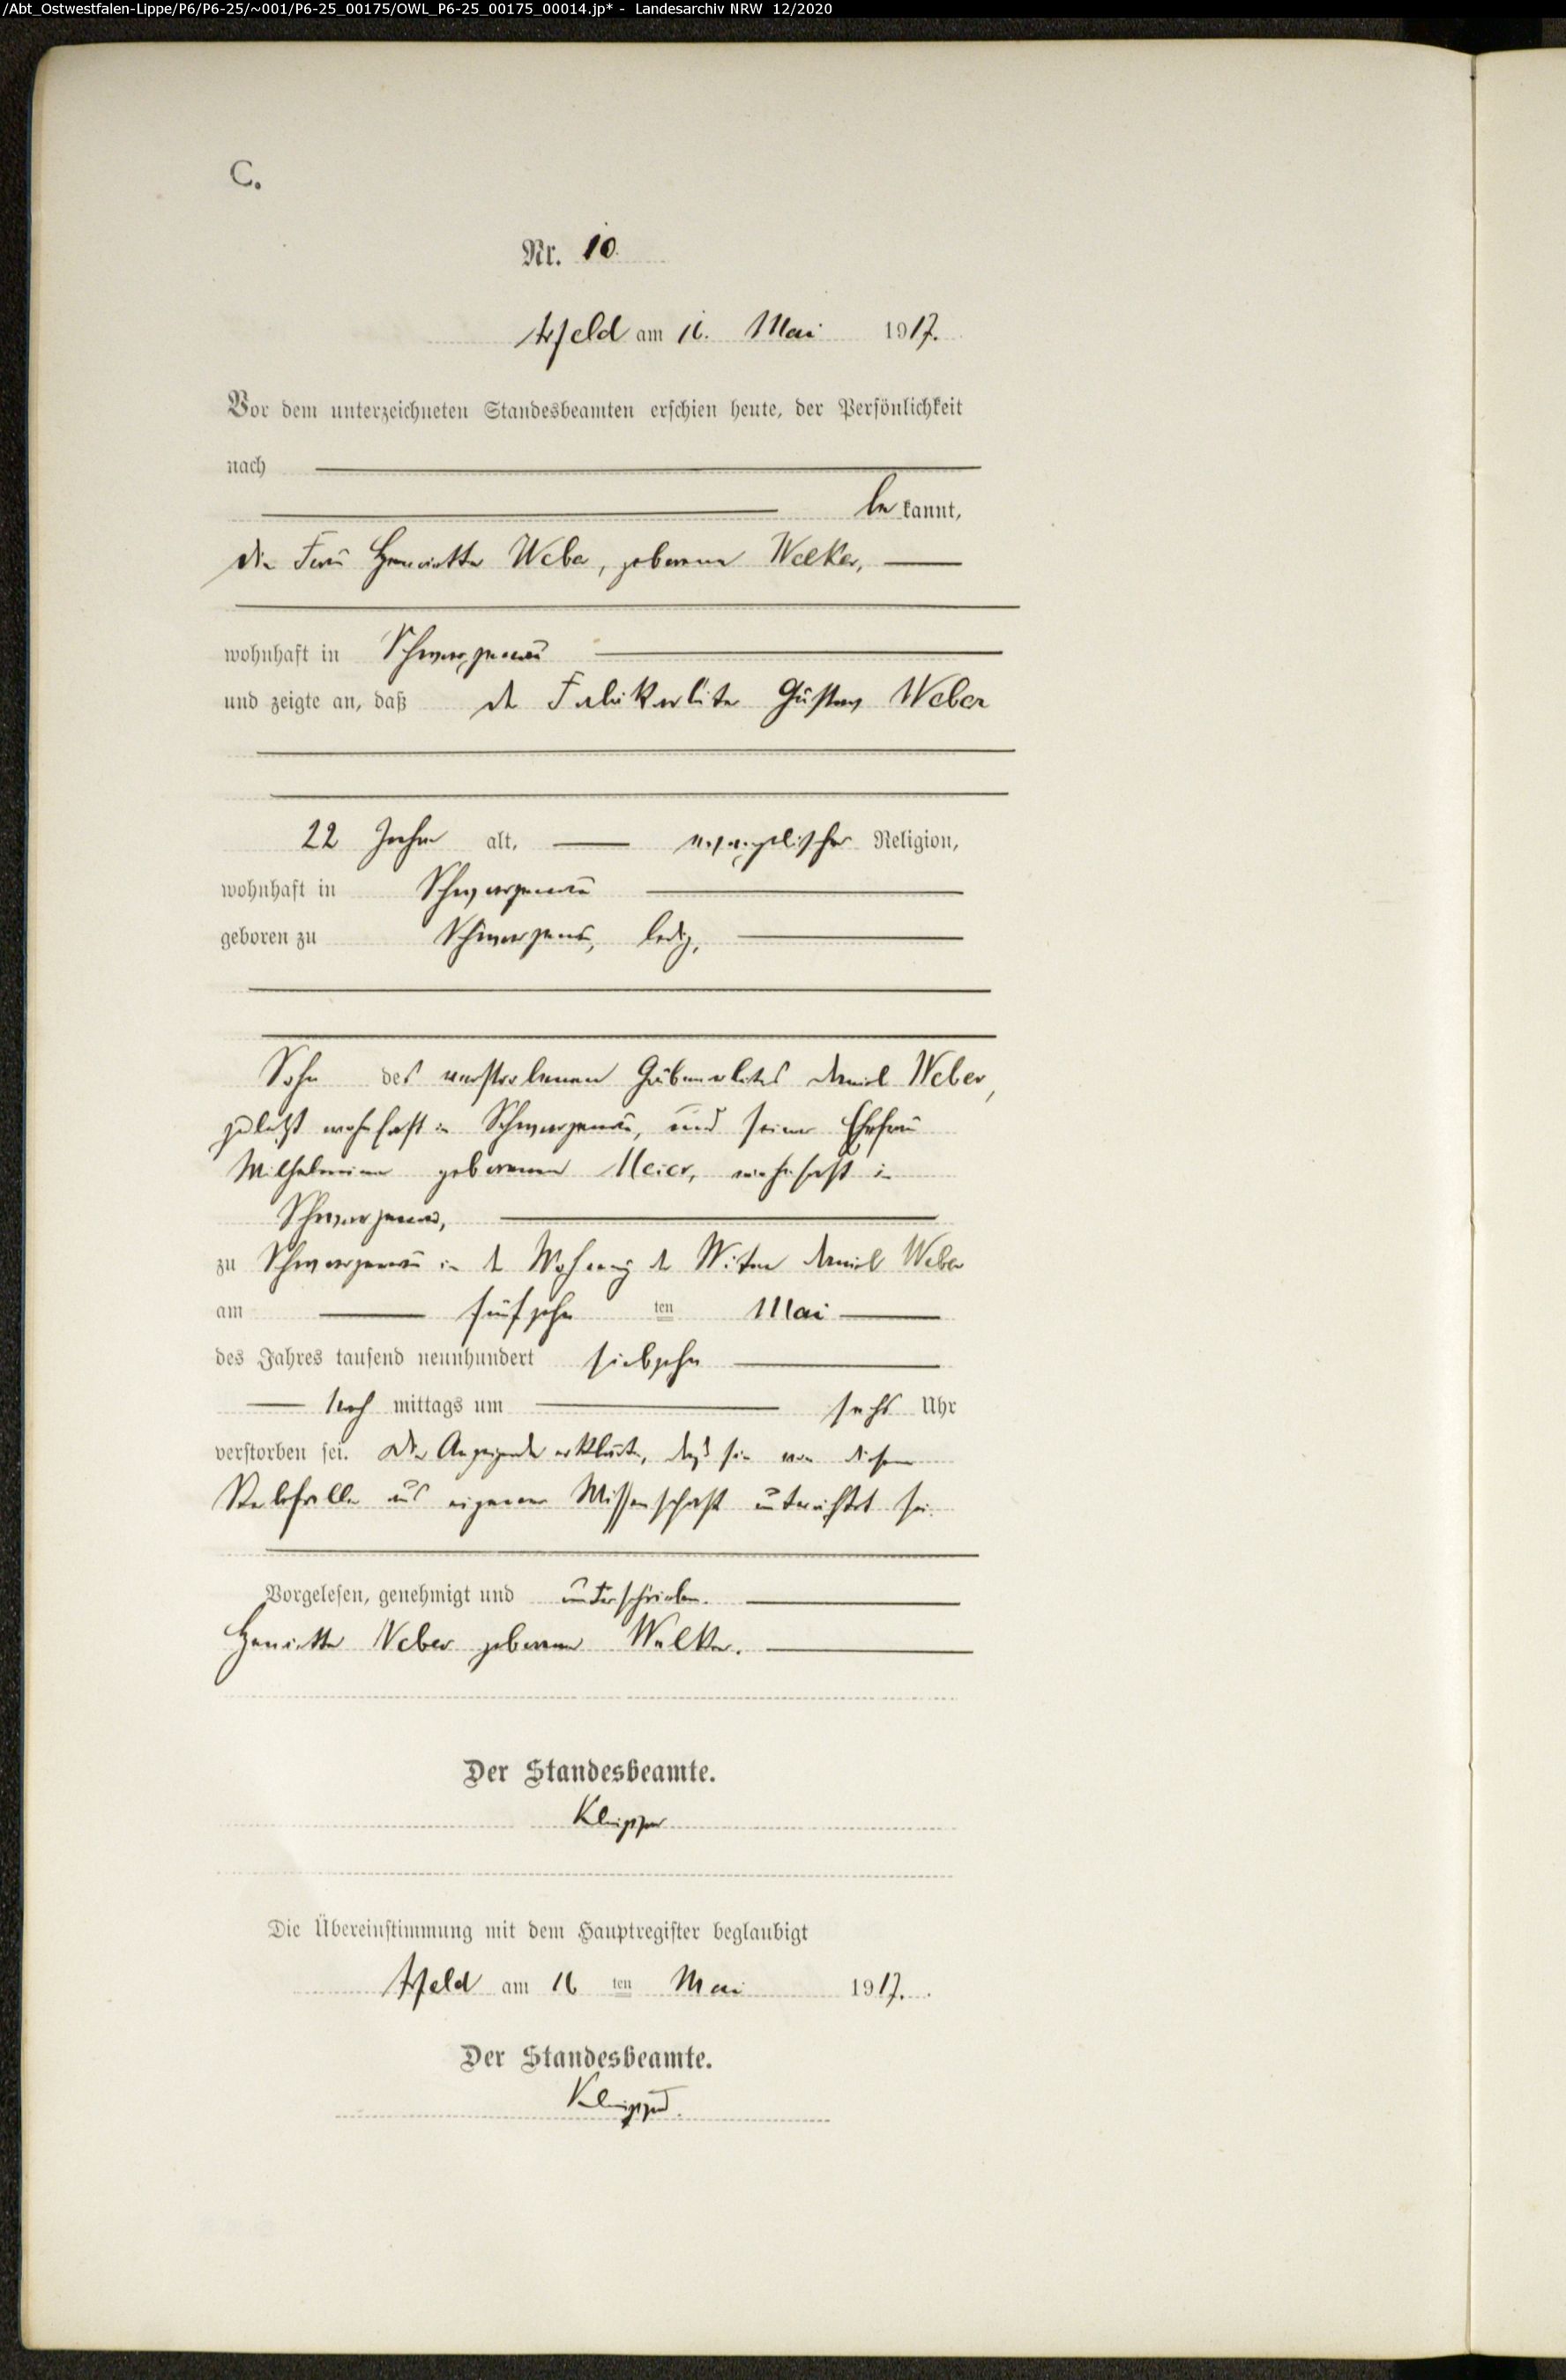 /Abt_Ostwestfalen-Lippe/P6/P6-25/~001/P6-25_00175/OWL_P6-25_00175_00014.jp* - Landesarchiv NRW 12/2020
C.
Nr. 10.
Arfeld am 16. Mai 1917.
Vor dem unterzeichneten Standesbeamten erschien heute, der Persönlichkeit
nach
be kannt,
die Frau Henriette Weber, geborene Welker,
wohnhaft in Schwarzenau
und zeigte an, daß der Fabrikarbeiter Gustav Weber
22 Jahre alt, evangelischer Religion,
wohnhaft in Schwarzenau
geboren zu Schwarzenau, ledig,
Sohn des verstorbenen Grubenarbeiters Daniel Weber,
zuletzt wohnhaft in Schwarzenau, und seiner Ehefrau
Wilhelmine geborenen Meier, wohnhaft in
Schwarzenau,
zu Schwarzenau in der Wohnung der Witwe Daniel Weber
am fünfzehn ten Mai
des Jahres tausend neunhundert siebzehn
Nach mittags um sechs Uhr
verstorben sei. Die Anzeigende erklärte, daß sie von diesem
Sterbefalle aus eigener Wissenschaft unterrichtet sei.
Vorgelesen, genehmigt und unterschrieben.
Henriette Weber geborene Welker.
Der Standesbeamte.
Die Übereinstimmung mit dem Hauptregister beglaubigt
Arfeld am 16 ten Mai 1917.
Der Standesbeamte.